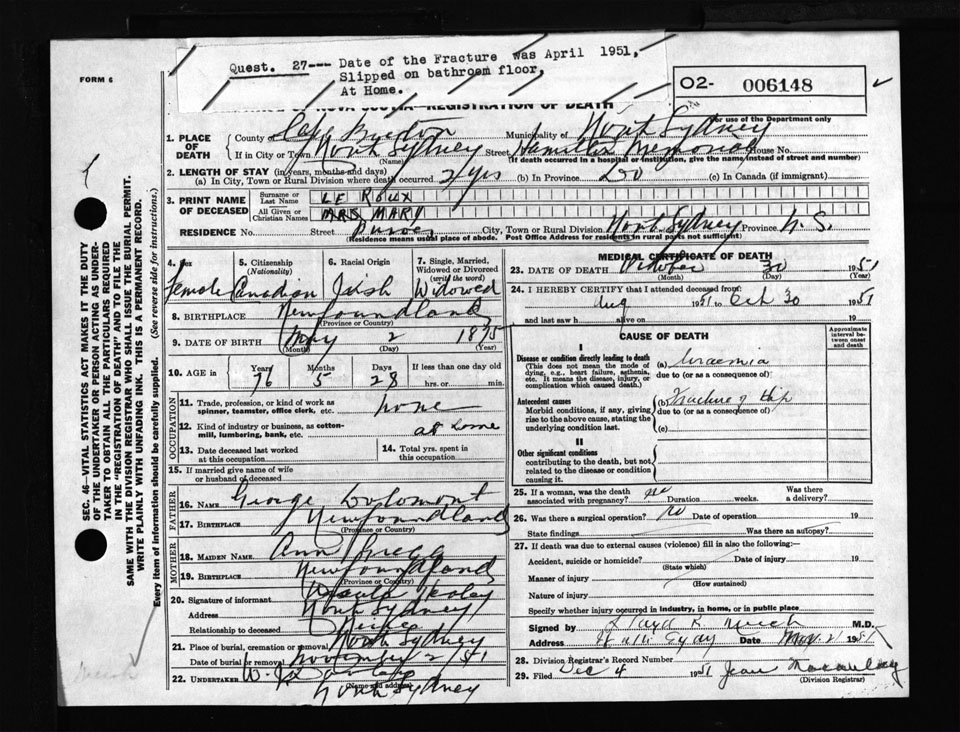 FORM 6
Quest. 27--- Date of the Fracture was April 1951,
Slipped on bathroom floor,
At Home.
O2- 006148
REGISTRATION OF DEATH
For use of the Department only
1. PLACE OF DEATH
County Cape Breton Municipality of North Sydney
If in City or Town North Sydney Street Hamilton Memorial House No.
(Name) (If death occurred in a hospital or institution, give the name instead of street and number)
2. LENGTH OF STAY (in years, months and days)
(a) In City, Town or Rural Division where death occurred 2 yrs (b) In Province (c) In Canada (if immigrant)
3. PRINT NAME OF DECEASED
Surname or Last Name LE ROUX
All Given or Christian Names MRS MARY
RESIDENCE No. Street City, Town or Rural Division North Sydney Province N. S.
(Residence means usual place of abode. Post Office Address for residents in rural parts not sufficient)
4. Sex Female
5. Citizenship (Nationality) Canadian
6. Racial Origin Irish
7. Single, Married, Widowed or Divorced (write the word) Widowed
8. BIRTHPLACE Newfoundland
(Province or Country)
9. DATE OF BIRTH May 2 1875
(Month) (Day) (Year)
10. AGE in Years 76 Months 5 Days 28 If less than one day old
hrs. or min.
OCCUPATION
11. Trade, profession, or kind of work as spinner, teamster, office clerk, etc. none
12. Kind of industry or business, as cotton-mill, lumbering, bank, etc. at home
13. Date deceased last worked at this occupation
14. Total yrs. spent in this occupation
15. If married give name of wife or husband of deceased
FATHER
16. NAME George
17. BIRTHPLACE Newfoundland
(Province or Country)
MOTHER
18. MAIDEN NAME Ann
19. BIRTHPLACE Newfoundland
(Province or Country)
20. Signature of informant
Address North Sydney
Relationship to deceased
21. Place of burial, cremation or removal North Sydney
Date of burial or removal November 2 51
22. UNDERTAKER W. J.
(Name and address)
North Sydney
MEDICAL CERTIFICATE OF DEATH
23. DATE OF DEATH October 30 1951
(Month) (Day) (Year)
24. I HEREBY CERTIFY that I attended deceased from:
Aug 1951 to Oct 30 1951
and last saw h alive on 19
CAUSE OF DEATH
Approximate interval between onset and death
I
Disease or condition directly leading to death (This does not mean the mode of dying, e.g., heart failure, asthenia, etc. It means the disease, injury, or complication which caused death.)
(a) Uraemia
due to (or as a consequence of)
Antecedent causes
Morbid conditions, if any, giving rise to the above cause, stating the underlying condition last.
(b) Fracture of Hip
due to (or as a consequence of)
(c)
II
Other significant conditions
contributing to the death, but not related to the disease or condition causing it.
25. If a woman, was the death associated with pregnancy? no Duration weeks. Was there a delivery?
26. Was there a surgical operation? no Date of operation 19
State findings Was there an autopsy?
27. If death was due to external causes (violence) fill in also the following:—
Accident, suicide or homicide? Date of injury 19
(State which)
Manner of injury
(How sustained)
Nature of injury
Specify whether injury occurred in industry, in home, or in public place
Signed by M.D.
Address Date Nov. 2 1951
28. Division Registrar's Record Number
29. Filed Dec 4 1951 Jean
(Division Registrar)
SEC. 46—VITAL STATISTICS ACT MAKES IT THE DUTY
OF THE UNDERTAKER OR PERSON ACTING AS UNDER-
TAKER TO OBTAIN ALL THE PARTICULARS REQUIRED
IN THE "REGISTRATION OF DEATH" AND TO FILE THE
SAME WITH THE DIVISION REGISTRAR WHO SHALL ISSUE THE BURIAL PERMIT.
WRITE PLAINLY WITH UNFADING INK. THIS IS A PERMANENT RECORD.
Every item of information should be carefully supplied. (See reverse side for instructions.)